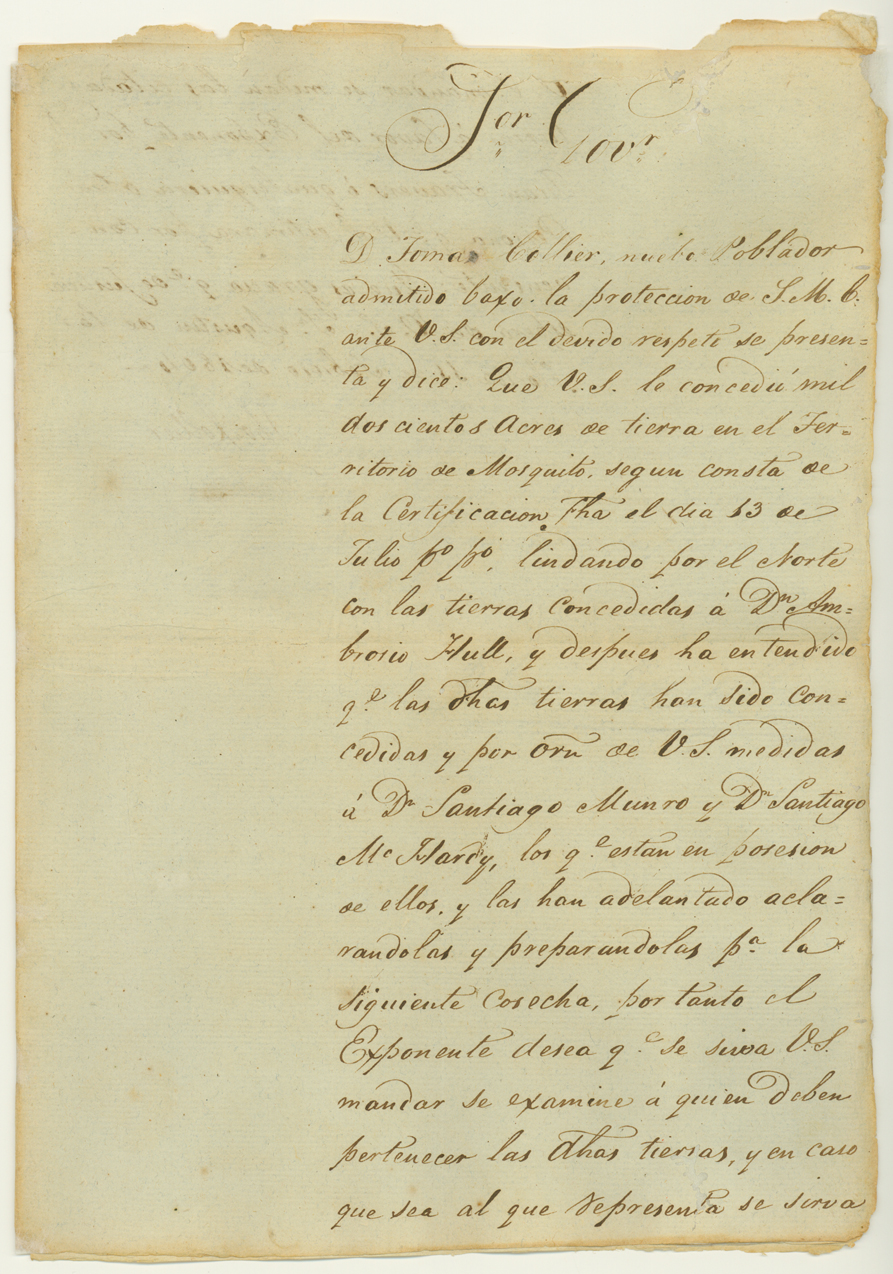 Sor. Govr.
D. Tomas Collier, nuebo Poblador
admitido baxo la proteccion de S. M. C.
ante V. S. con el devido respeto se presen=
ta y dice: Que V. S. le concedió mil
dos cientos Acres de tierra en el Ter=
ritorio de Mosquito, segun consta de
la Certificacion fha el dia 13 de
Julio po. po., lindando por el Norte
con las tierras concedidas á Dn. Am=
brosio Hull, y despues ha entendido
qe. las dhas tierras han sido con=
cedidas y por orn de V. S. medidas
á Dn. Santiago Munro y Dn. Santiago
Mc Hardy, los qe. estan en posesion
de ellos, y las han adelantado acla=
randolas y preparandolas pa. la
siguiente Cosecha, por tanto el
Exponente desea qe. se sirva V. S.
mandar se examine á quien deben
pertenecer las dhas tierras, y en caso
que sea al que representa se sirva